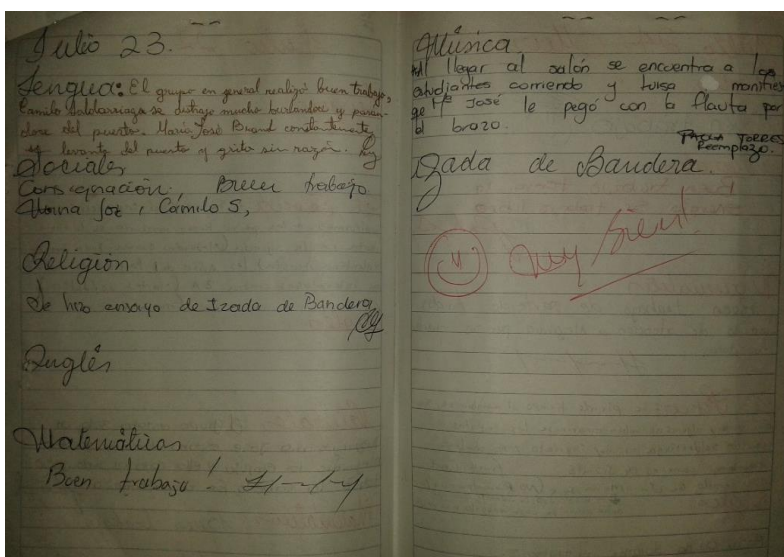 Julio 23.
Lengua: El grupo en general realizó buen trabajo,
Camilo Saldarriaga se distrajo mucho burlandose y paran-
dose del puesto. Maria José Brand constantemente
se levanta del puesto y grita sin razón.
Sociales
Consignación, Buen trabajo
Camilo S,
Religión
Se hizo ensayo de Izada de Bandera
Inglés
Matemáticas
Buen trabajo!
Música
Al llegar al salón se encuentra a los
estudiantes corriendo y luisa manifies
que Mª José le pegó con la flauta por
el brazo.
PAULA TORRES
Reemplazo.
Izada de Bandera.
Muy bien!